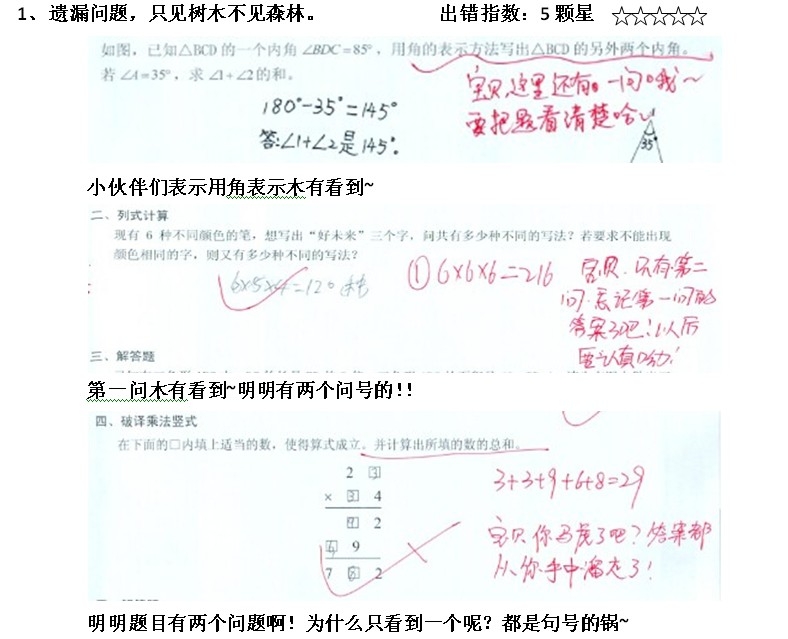 1、遗漏问题，只见树木不见森林。 出错指数：5 颗星 ☆☆☆☆☆
如图，已知△BCD的一个内角∠BDC=85°，用角的表示方法写出△BCD的另外两个内角。
若∠A=35°，求∠1+∠2的和。
宝贝，这里还有一问哦~
要把题看清楚哈~
180°-35°=145°
答:∠1+∠2是145°.
35°
小伙伴们表示用角表示木有看到~
二、列式计算
现有 6 种不同颜色的笔，想写出“好未来”三个字，问共有多少种不同的写法？若要求不能出现
颜色相同的字，则又有多少种不同的写法？
6×5×4=120
①6×6×6=216
宝贝.只有第二
问.忘记第一问的
答案了吧!以后
要认真哈!
三、解答题
第一问木有看到~明明有两个问号的!!
四、破译乘法竖式
在下面的□内填上适当的数，使得算式成立。并计算出所填的数的总和。
2 3
× 3 4
2
9
7 2
3+3+9+6+8=29
宝贝你马虎了吧?答案都
从你手中溜走了!
明明题目有两个问题啊！为什么只看到一个呢？都是句号的锅~